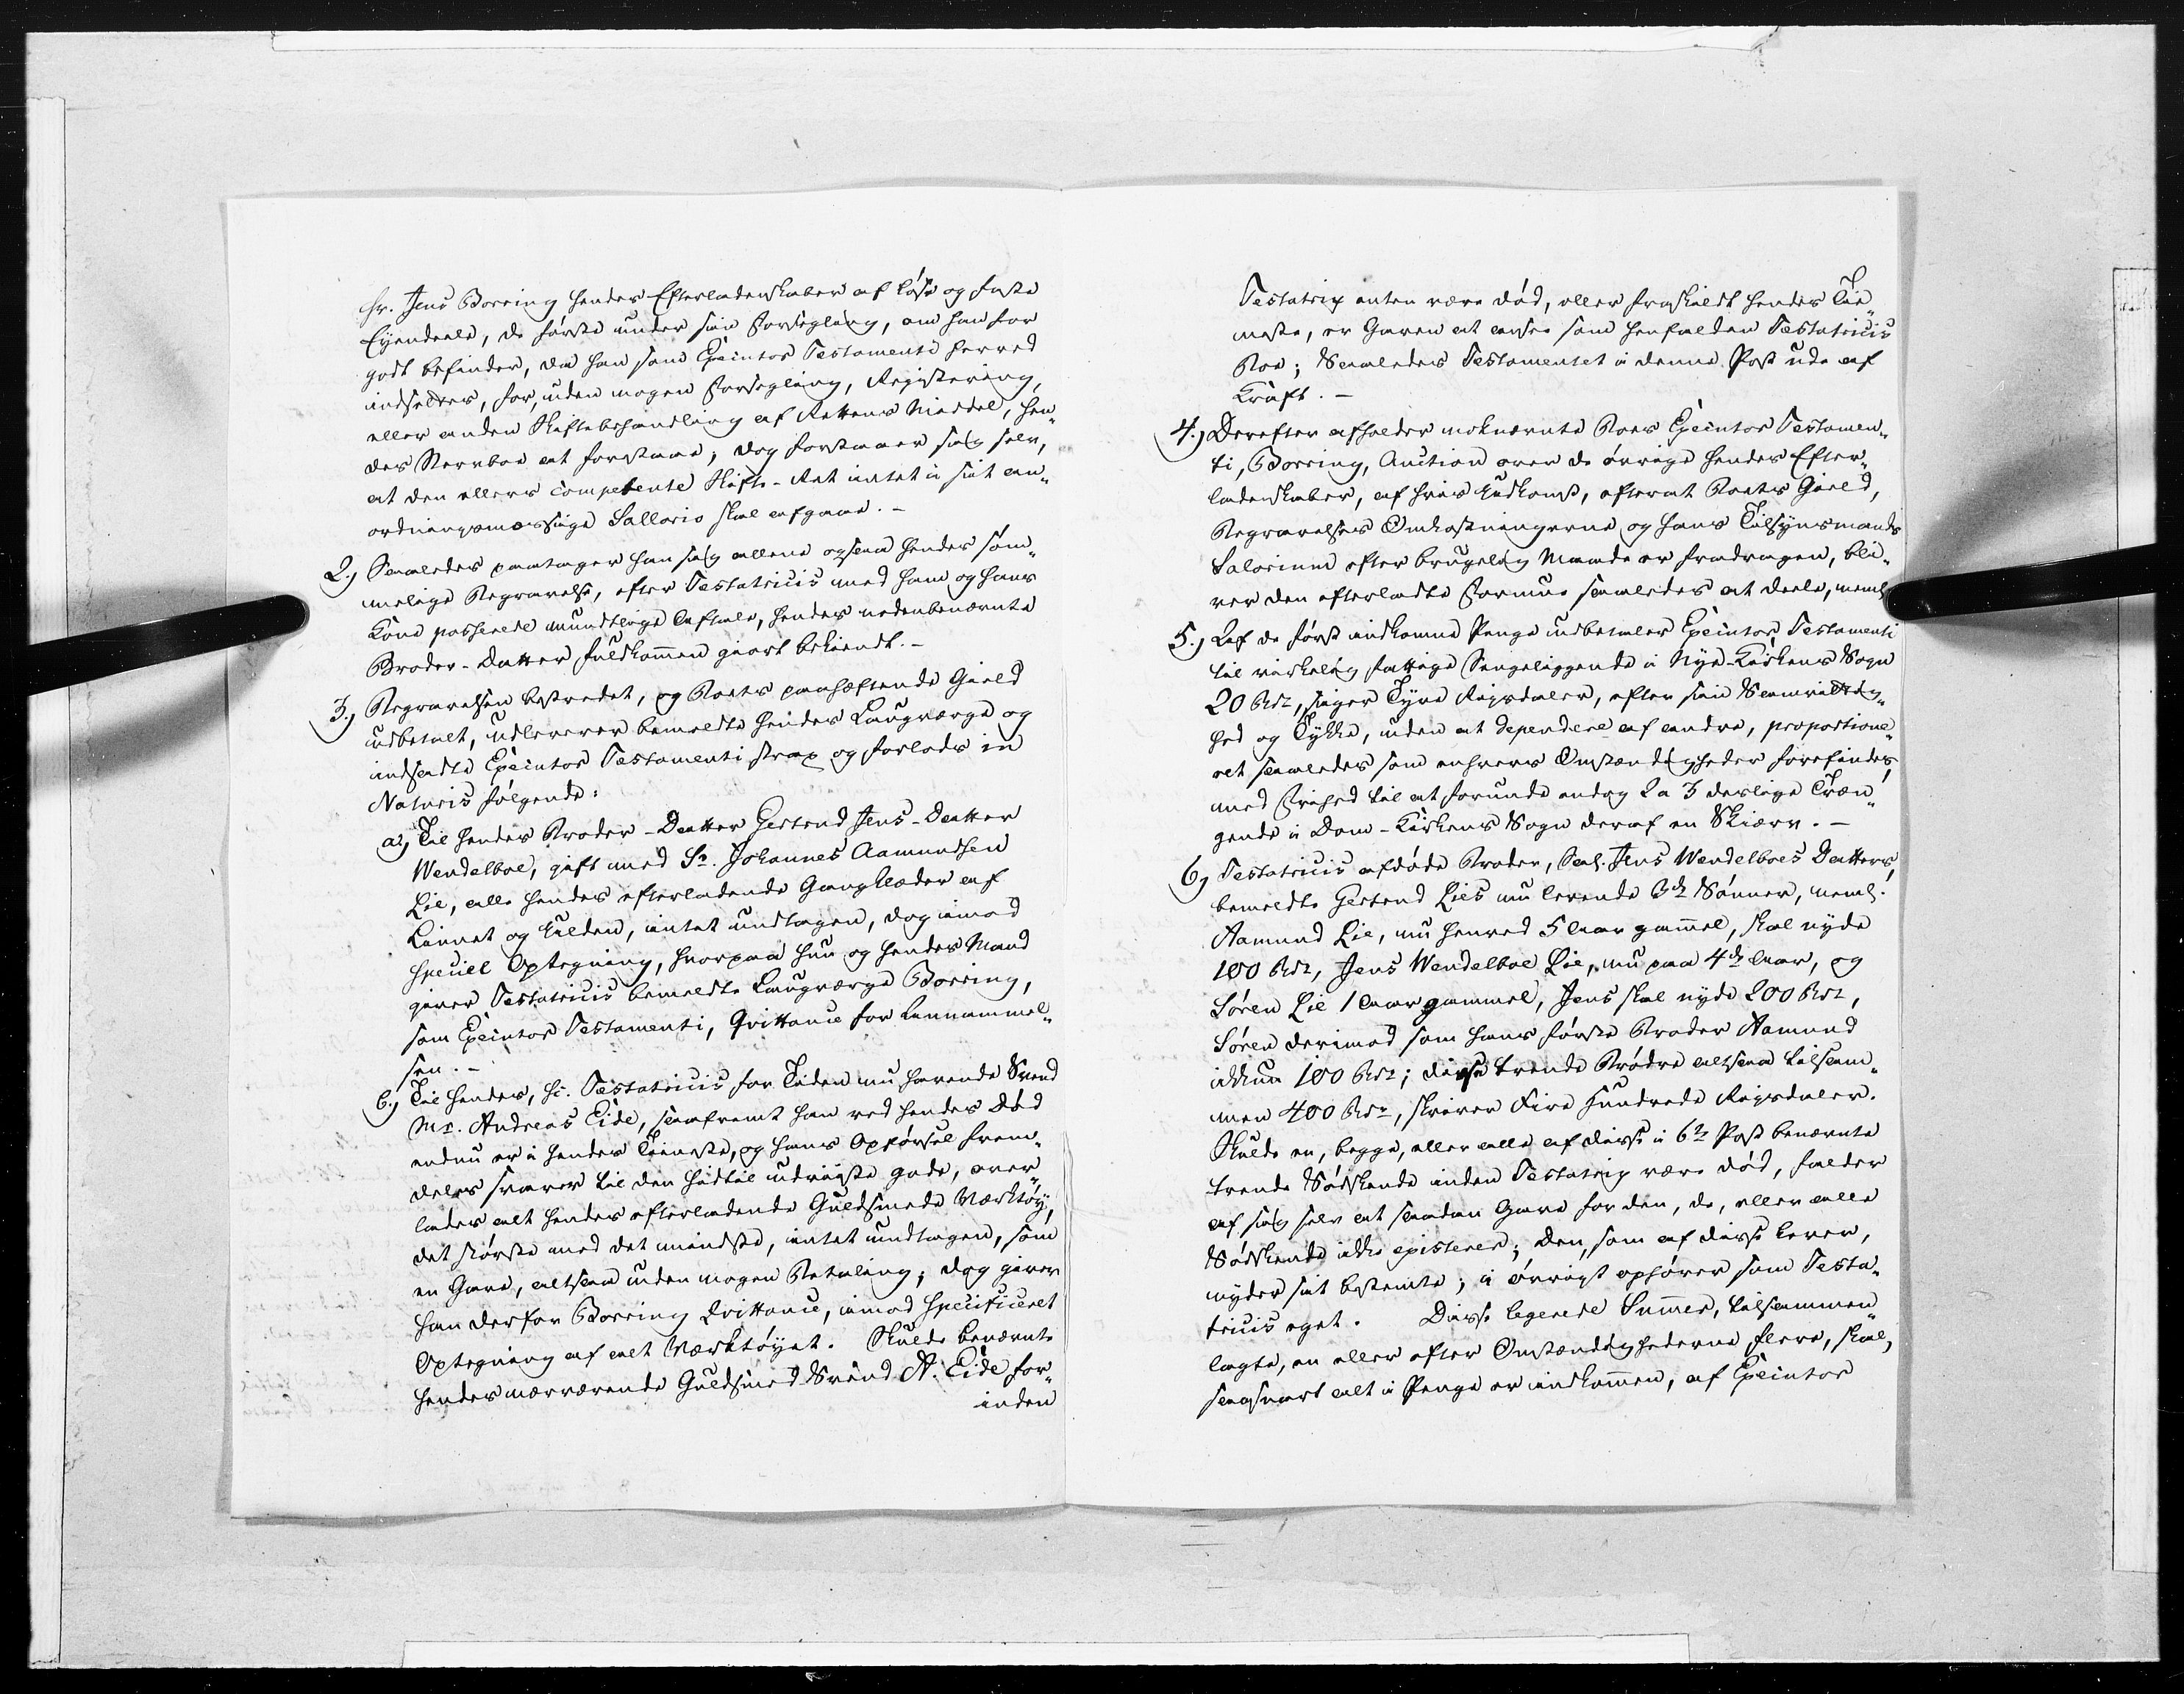 Hr. Jens Borring hendes Efterladenskaber af løse og faste
Eyendeele, de første under sin Forsegling, om han for
godt befinder, da han som Executor Testamenti herved
indsettes, for, uden nogen Forsegling, Registering,
eller anden Skiftebehandling af Rettens Middel, hen„
des Sterrboe at forestaae; dog forstaaer sig selv,
at den ellers competente Skifte-Ret intet i sit an„
ordningsmæssige Sallario skal afgaae. –
2.) Saaledes paatager han sig allene ogsaa hendes søm„
melige Begravelse, efter Testatricis med ham og hans
Kone passerede mundtlige Aftale, hendes nedenbenævnte
Broder-Datter fuldkommen giort bekiendt. –
3.) Begravelsen bestredet, og Boets paaheftende Gield
udbetalt, udleverer bemeldte hendes Laugværge og
indsadte Executor Testamenti strax og forlods in
Naturis følgende:
a.) Til hendes Broder-Datter Gertrud Jens-Datter
Wendelboe, gift med Sr. Johannes Aamundsen
Lie, alle hendes efterladende Gangklæder af
Linnet og Uldent, intet undtagen, dog imod
speciel Optegning, hvorpaa hun og hendes Mand
giver Testatricis bemeldte Laugværge Borring,
som Executor Testamenti, Qvittance for Annammel„
sen. –
b.) Til hendes, sc. Testatricis for Tiden nu havende Svend
Mr. Andreas Eide, saafremt han ved hendes Død
endnu er i hendes Tieneste, og hans Opførsel frem„
deles svarer til den hidtil udviiste gode, over„
lades alt hendes efterladende Guldsmede Værktøy,
det største med det mindste, intet undtagen, som
en Gave, altsaa uden nogen Betaling; dog giver
han derfor Borring Qvittance, imod specificeret
Optegning af alt Værktøyet. Skulde benævnte
hendes nærværende Guldsmed-Svend A. Eide for„
inden
Testatrix enten være død, eller fraskildt hendes Tie„
neste, er Gaven at ansee som henfalden Testatricis
Boe; Saaledes Testamentet i denne Post ude af
Kraft. –
4.) Derefter afholder moknævnte Boes Executor Testamen„
ti, Borring, Auction over de øvrige hendes Efter„
ladenskaber, af hvis Udkomst, efterat Boets Gield,
Begravelses Omkostningerne og hans Tilsynsmands
Salarium efter brugelig Maade er fradragen, bli„
ver den efterladte Formue saaledes at deele, neml.
5.) Af de først indkomne Penge udbetaler Executor Testamenti
til virkelig fattige Sengeliggende i Nye-Kirkens Sogn
20 Rdr, siger Tyve Rigsdaler, efter sin Samvittig„
hed og Tykke, uden at dependere af andre, proportione„
ret saaledes som enhvers Omstændigheder forefindes,
med Frihed til at forunde endog 2 a 3 deslige Træn„
gende i Dom-Kirkens Sogn deraf en Skiærv. –
6.) Testatricis afdøde Broder, Sal. Jens Wendelboes Datters,
bemeldte Gertrud Lies nu levende 3de Sønner, neml.
Aamund Lie, nu henved 5 Aar gammel, skal nyde
100 Rdr, Jens Wendelboe Lie, nu paa 4de Aar, og
Søren Lie 1 Aar gammel, Jens skal nyde 200 Rdr,
Søren derimod som hans første Broder Aamund
ickun 100 Rdr; disse trende Brødre altsaa tilsam„
men 400 Rdr, skriver Fire Hundrede Rigsdaler.
Skulde en, begge, eller alle af disse i 6te Post benævnte
trende Sødskende inden Testatrix være død, falder
af sig selv at saadan Gave for den, de, eller alle
Sødskende ikke existerer; den, som af disse lever,
nyder sit bestemte; i øvrigt ophører som Testa„
tricis eget. Disse legerede Summer, tilsammen„
lagte, en eller efter Omstændighederne flere, skal,
saasnart alt i Penge er indkommen, af Executor